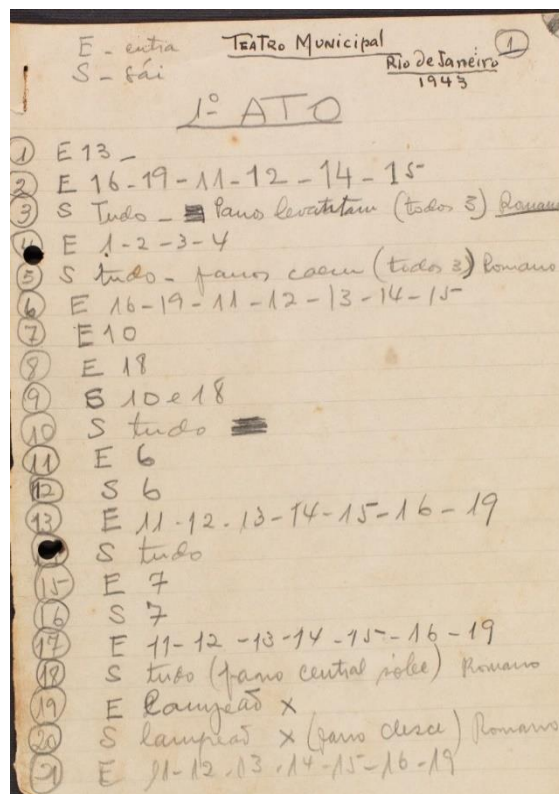 E - entra TEATRO MUNICIPAL 1
S - sái Rio de Janeiro
1943
1º ATO
1 E 13 -
2 E 16-19-11-12-14-15
3 S Tudo - Panos levantam (todos 3) Romano
4 E 1-2-3-4
5 S tudo - panos caem (todos 3) Romano
6 E 16-19-11-12-13-14-15
7 E 10
8 E 18
9 S 10 e 18
10 S tudo
11 E 6
12 S 6
13 E 11-12-13-14-15-16-19
S tudo
15 E 7
16 S 7
17 E 11-12-13-14-15-16-19
18 S tudo (pano central sobe) Romano
19 E Lampeão X
20 S lampeão X (pano desce) Romano
21 E 11-12-13-14-15-16-19